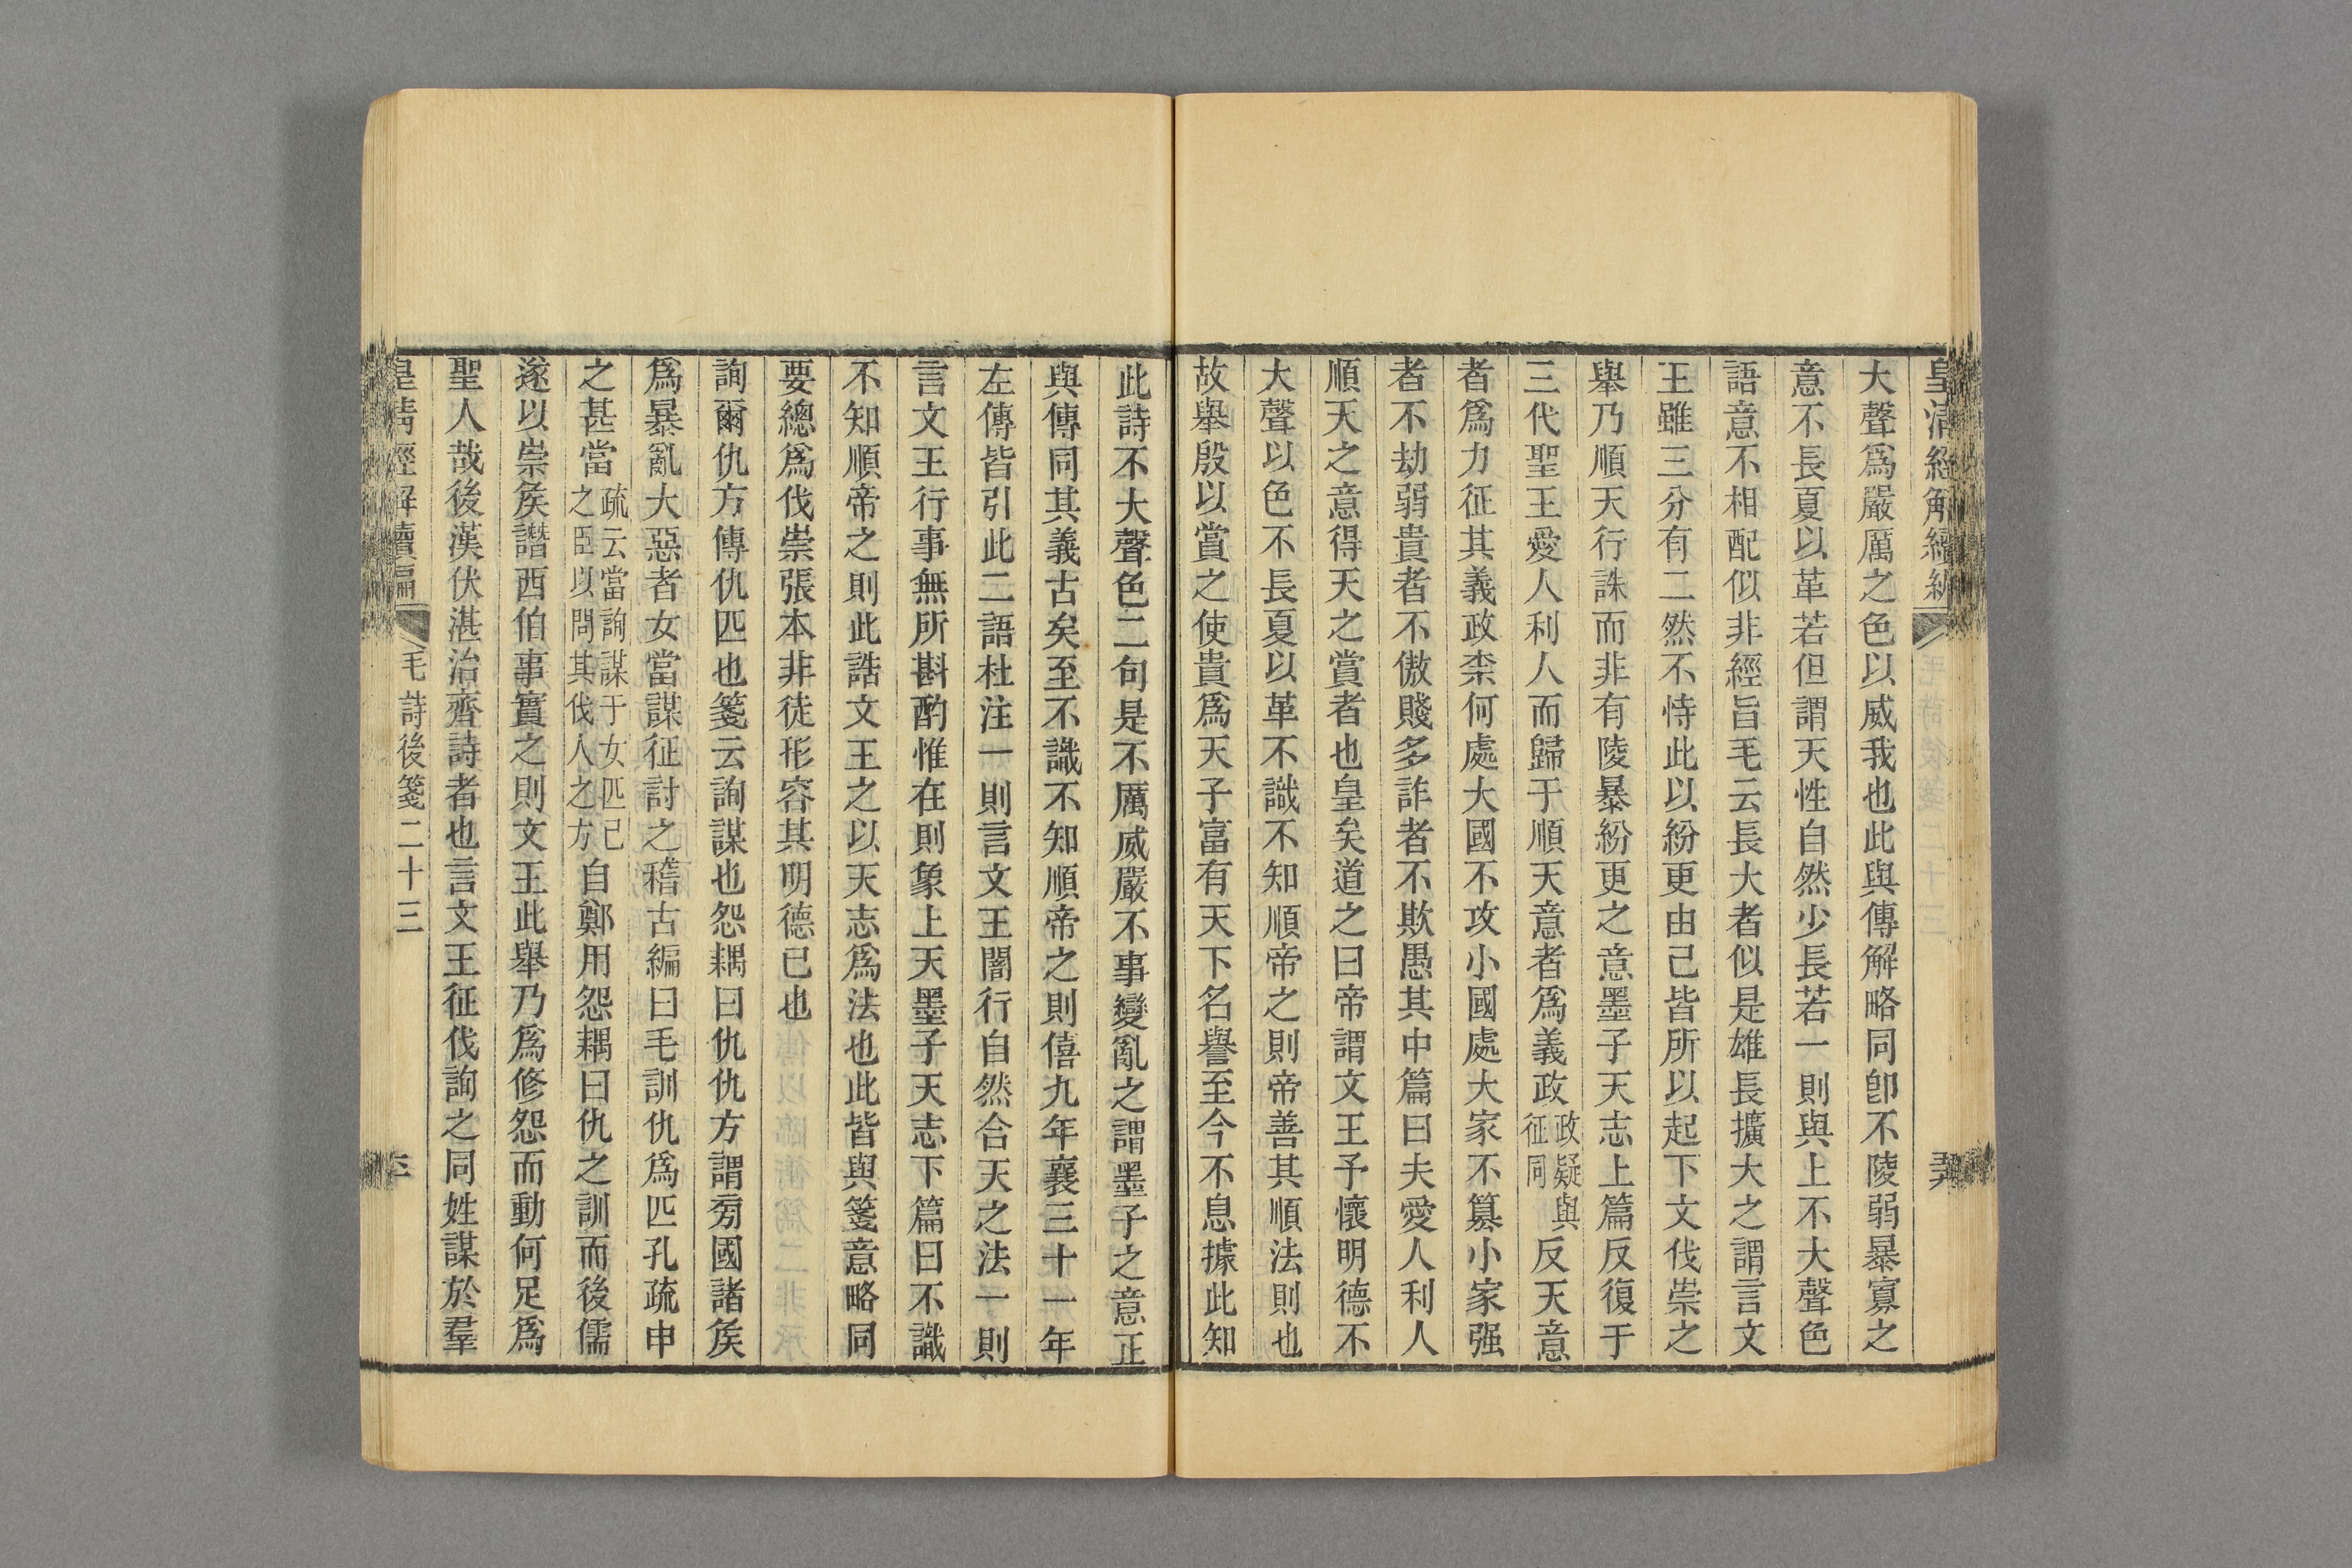 大聲爲嚴厲之色以威我也此與傳解略同卽不陵弱暴寡之
意不長夏以革若但謂天性自然少長若一則與上不大聲色
語意不相配似非經旨毛云長大者似是雄長擴大之謂言文
王雖三分有二然不恃此以紛更由己皆所以起下文伐崇之
舉乃順天行誅而非有陵暴紛更之意墨子天志上篇反復于
三代聖王愛人利人而歸于順天意者爲義政政疑與征同反天意
者爲力征其義政柰何處大國不攻小國處大家不篡小家强
者不劫弱貴者不傲賤多詐者不欺愚其中篇曰夫愛人利人
順天之意得天之賞者也皇矣道之曰帝謂文王予懷明德不
大聲以色不長夏以革不識不知順帝之則帝善其順法則也
故舉殷以賞之使貴爲天子富有天下名譽至今不息據此知
此詩不大聲色二句是不厲威嚴不事變亂之謂墨子之意正
與傳同其義古矣至不識不知順帝之則僖九年襄三十一年
左傳皆引此二語杜注一則言文王闇行自然合天之法一則
言文王行事無所斟酌惟在則象上天墨子天志下篇曰不識
不知順帝之則此誥文王之以天志爲法也此皆與箋意略同
要總爲伐崇張本非徒形容其明德已也
詢爾仇方傳仇匹也箋云詢謀也怨耦曰仇仇方謂旁國諸矦
爲暴亂大惡者女當謀征討之稽古編曰毛訓仇爲匹孔疏申
之甚當疏云當詢謀于女匹己之臣以問其伐人之方自鄭用怨耦曰仇之訓而後儒
遂以崇矦譖西伯事實之則文王此舉乃爲修怨而動何足爲
聖人哉後漢伏湛治齊詩者也言文王征伐詢之同姓謀於羣
毛詩後箋二十三